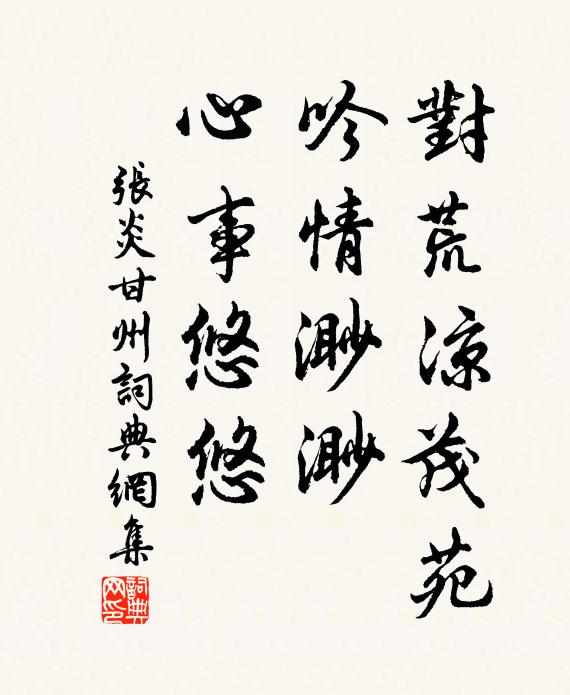 對荒涼茂苑
吟情渺渺
心事悠悠
張炎甘州詞典網集
詞典網印